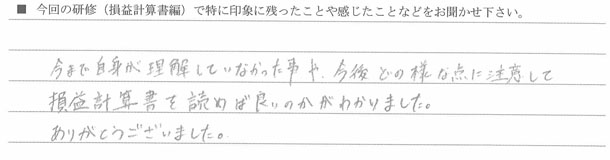 ■ 今回の研修（損益計算書編）で特に印象に残ったことや感じたことなどをお聞かせ下さい。
今まで自身が理解していなかった事や、今後どの様な点に注意して
損益計算書を読めば良いのかがわかりました。
ありがとうございました。